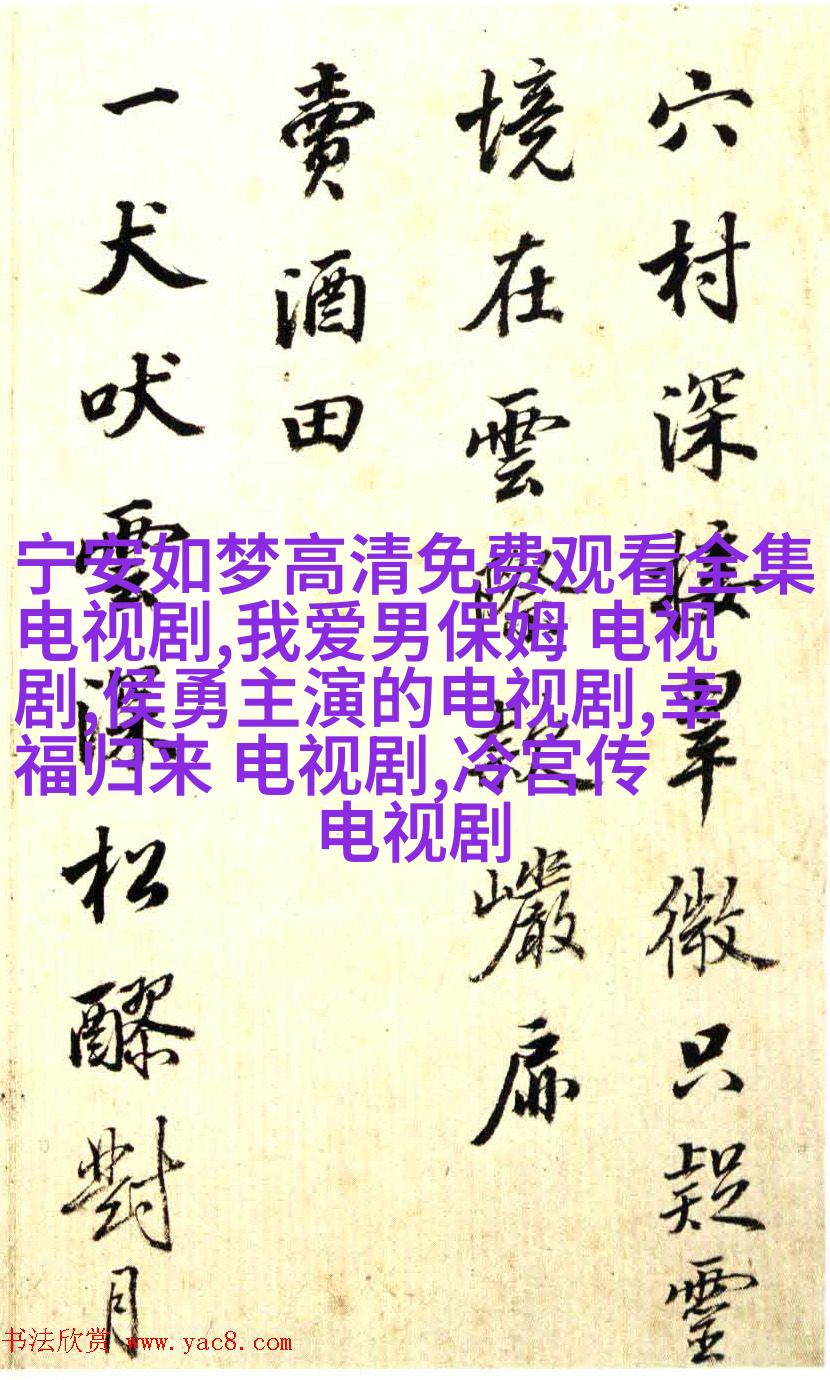 穴村深接翠微只疑靈
境在雲款巖扉
賣酒田
一犬吠雲深松醪對月
宁安如梦高清免费观看全集
电视剧,我爱男保姆 电视
剧,侯勇主演的电视剧,幸
福归来 电视剧,冷宫传
电视剧
书法欣赏 www.yac8.com